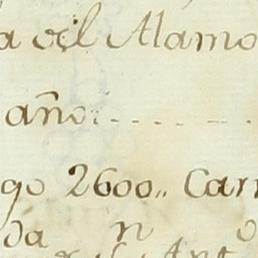 a del Alamo
año..........
go 2600,, Carr
da n o